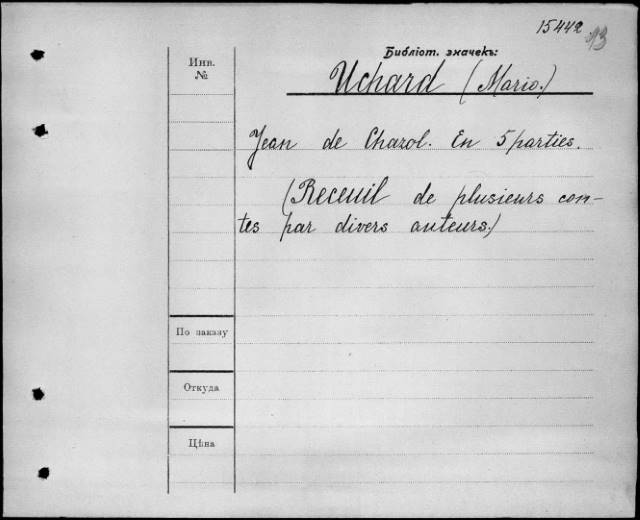 15442 13
Библіот. значекъ:
Инв.
№
Uchard (Mario.)
Jean de Chazol. En 5 parties.
(Receuil de plusieurs con-
tes par divers auteurs.)
По заказу
Откуда
Цѣна